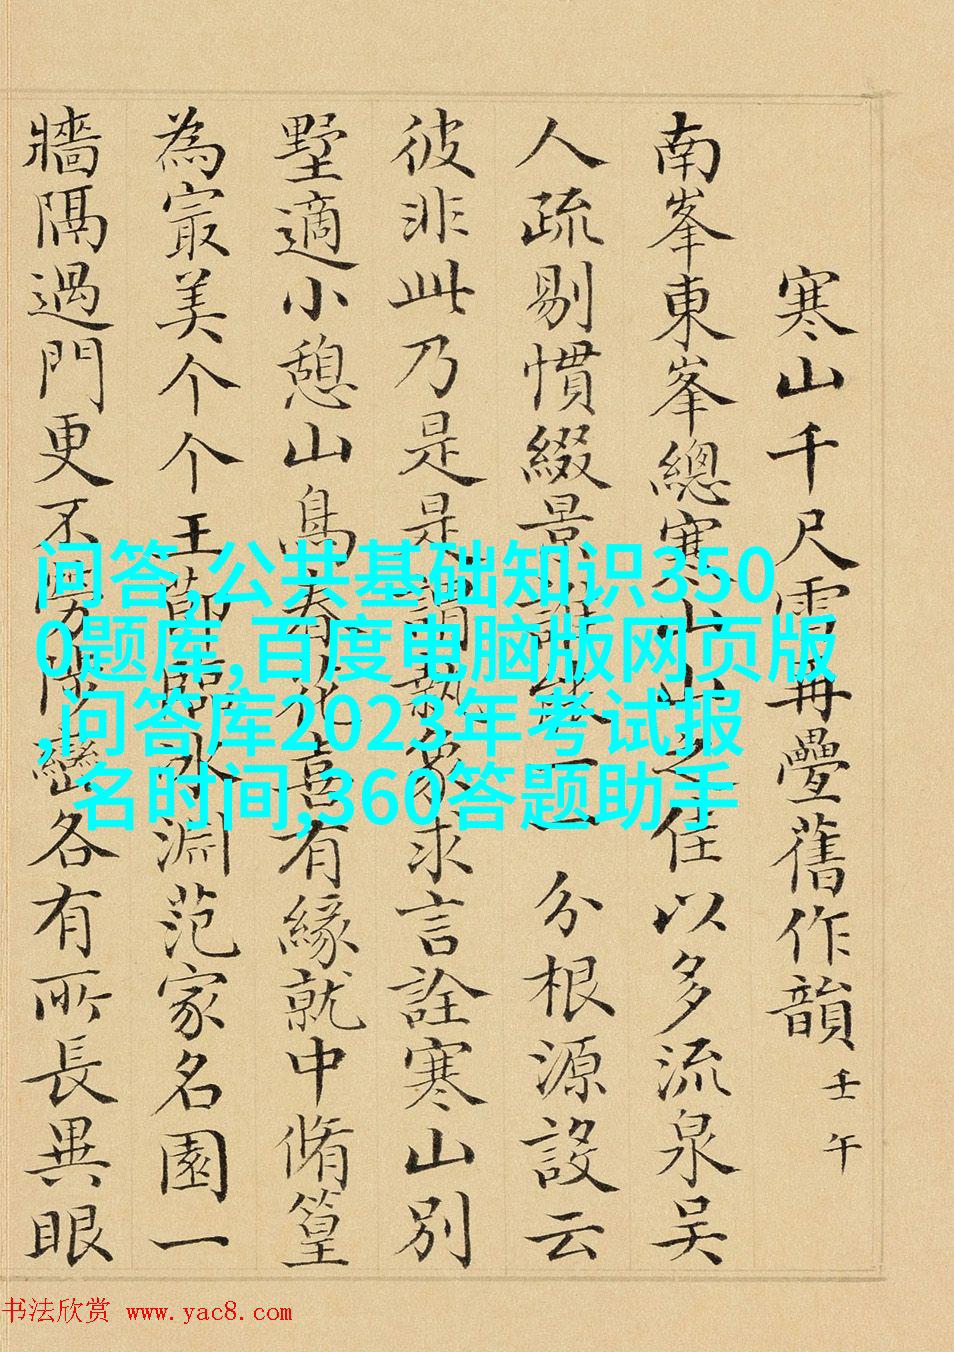 寒山千尺雪再疊舊作韻 壬午
南峯東峯總寒山山之佳以多流泉吴
人疏剔慣綴景分根源設云
彼非此乃是是謂執象求言詮寒山别
墅適小憩山鳥春花喜有緣就中脩篁
為冣美个个王節臨水淵范家名園一
牆隔過門更不勞巒各有所長異眼
问答,公共基础知识350
0题库,百度电脑版网页版
,问答库2023年考试报
名时间,360答题助手
书法欣赏 www.yac8.com